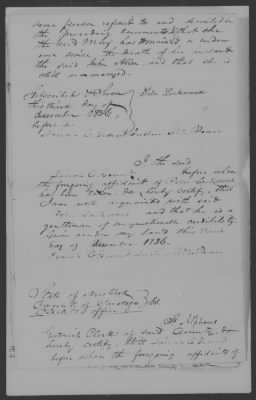 same person referred to and described in
the preceding documents that she
the said Mary has remained a widow
ever since the death of her husband
the said John Allen, and that she is
still unmarried.
Subscribed & sworn
this third day of
december 1836,
before me
Peter Lockwood
Justice of the Peace
I the said
before whom
the foregoing affidavit of Peter Lockwood
was taken hereby certify, that
I am well acquainted with said
Peter Lockwood and that he is a
gentleman of unquestionable credibility
given under my hand this third
day of december 1836.
Justice of the Peace
State of New York
County of ss
Clerk's office
I Alpheus
Clerk of said County do
hereby certify, that
before whom the foregoing affidavits of